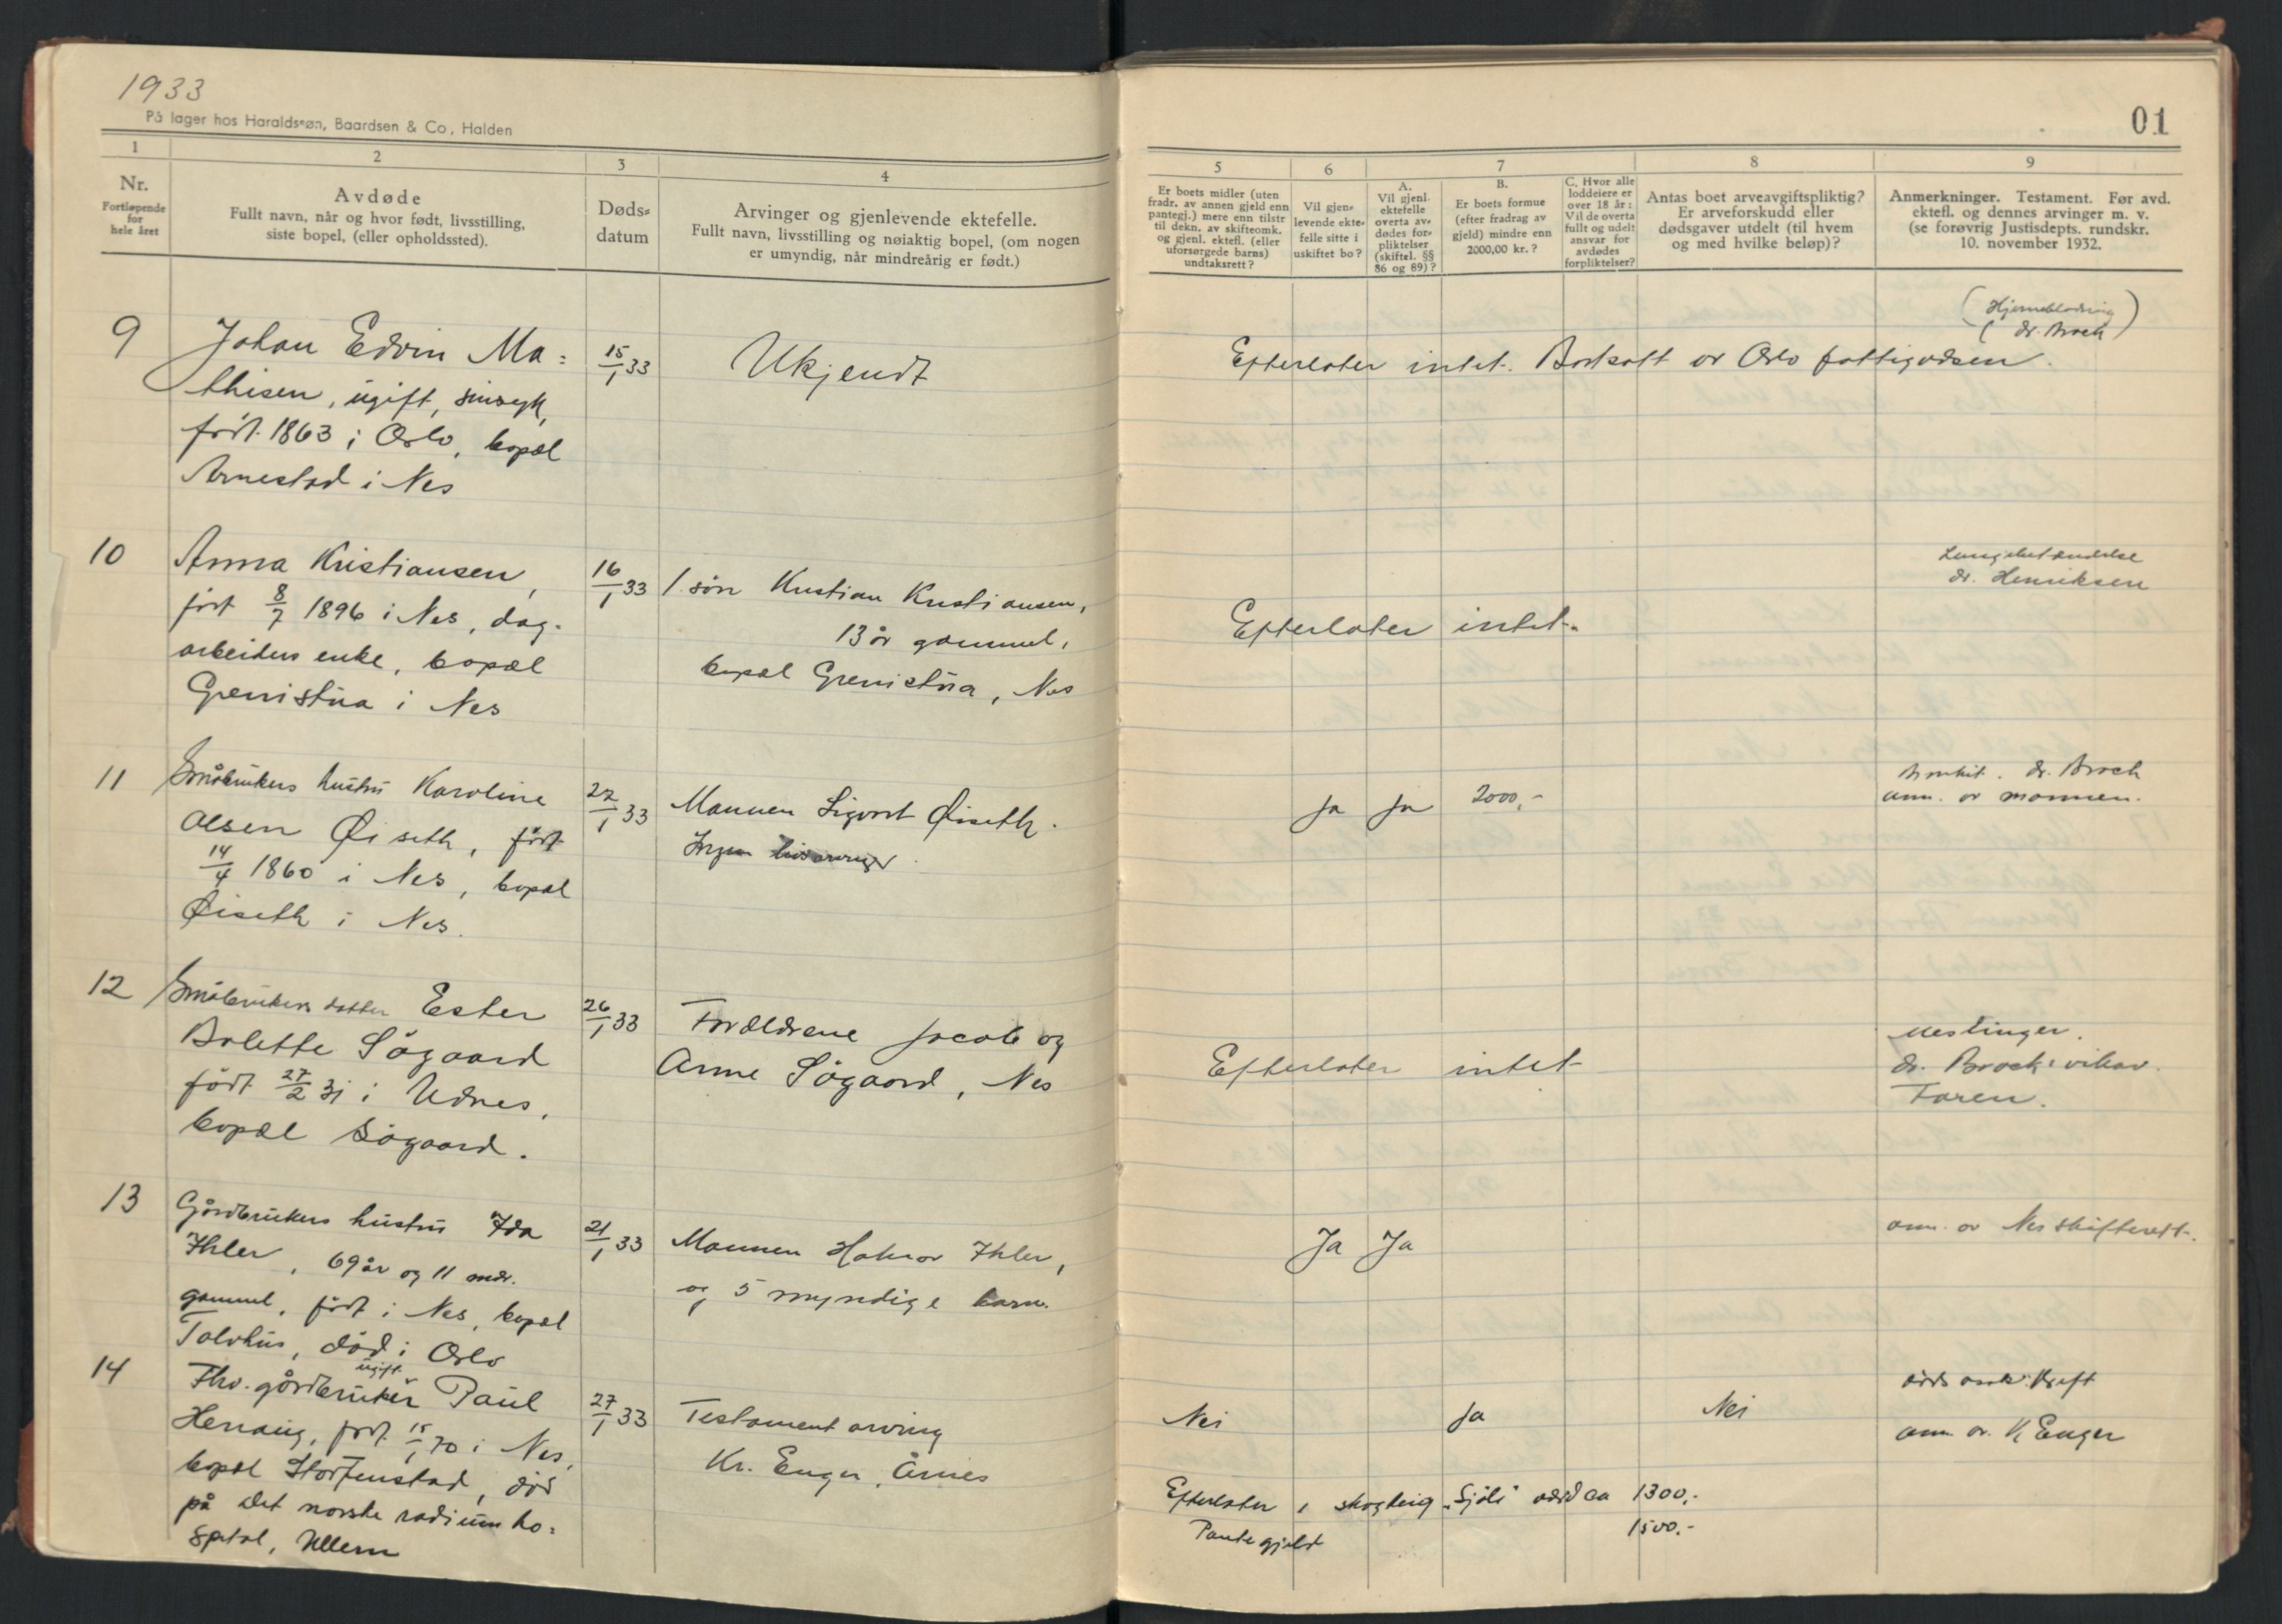 1933
På lager hos Haraldsøn, Baardsen & Co, Halden
1
Nr.
Fortløpende
for
hele året
2
Avdøde
Fullt navn, når og hvor født, livsstilling,
siste bopel, (eller opholdssted).
3
Døds-
datum
4
Arvinger og gjenlevende ektefelle.
Fullt navn, livsstilling og nøiaktig bopel, (om nogen
er umyndig, når mindreårig er født.)
9
Johan Edvin Ma=
thisen, ugift, sinsyk,
født 1863 i Oslo, bopæl
Arnestad i Nes
15/1 33
Ukjendt
10
Anna Kristiansen,
født 8/7 1896 i Nes, dag-
arbeiders enke, bopæl
Grenistua i Nes
16/1 33
1 søn Kristian Kristiansen,
13 år gammel,
bopæl Grenistua, Nes
11
Småbrukers hustru Karoline
Olsen Øiseth, født
14/4 1860 i Nes, bopæl
Øiseth i Nes.
22/1 33
Mannen Sigvart Øiseth.
Ingen livsarvinger
12
Småbrukers datter Ester
Bolette Sögaard
födt 27/2 31 i Udnes,
bopæl Sögaard.
26/1 33
Forældrene Jacob og
Anne Sögaard, Nes
13
Gårdbrukers hustru Ida
Ihler, 69 år og 11 mdr.
gammel, født i Nes, bopæl
Tolvhus, død i Oslo
21/1 33
Mannen Halvor Ihler,
og 5 myndige barn.
14
Fhv. gårdbruker ugift Paul
Henaug, født 15/1 70 i Nes,
bopæl Horfenstad, død
på Det norske radium ho=
spital, Ullern
27/1 33
Testament arving
Kr. Enger, Årnes
01
5
Er boets midler (uten
fradr. av annen gjeld enn
pantegj.) mere enn tilstr
til dekn. av skifteomk.
og gjenl. ektefl. (eller
uforsørgede barns)
undtaksrett?
6
Vil gjen-
levende ekte-
felle sitte i
uskiftet bo?
7
A.
Vil gjenl.
ektefelle
overta av-
dødes for-
pliktelser
(skiftel. §§
86 og 89)?
B.
Er boets formue
(efter fradrag av
gjeld) mindre enn
2000,00 kr.?
C. Hvor alle
loddeiere er
over 18 år:
Vil de overta
fullt og udelt
ansvar for
avdødes
forpliktelser?
8
Antas boet arveavgiftspliktig?
Er arveforskudd eller
dødsgaver utdelt (til hvem
og med hvilke beløp)?
9
Anmerkninger. Testament. Før avd.
ektefl. og dennes arvinger m. v.
(se forøvrig Justisdepts. rundskr.
10. november 1932.
(Hjerneblødning)
(dr. Broch)
Efterlater intet. Bortsatt av Oslo fattigvæsen.
Lungebetændelse
dr. Henriksen
Efterlater intet.
Ja Ja 2000,-
Bronkit. dr. Broch
anm. av mannen.
Efterlater intet
Meslinger.
dr. Broch's vikar.
Faren.
Ja Ja
anm. av Nes skifterett.
Nei Ja Nei
døds årsak: Kreft
anm. av K. Enger
Efterlater 1 skogteig "Sjöli" værd ca 1300,-
Pantegjeld 1500.-